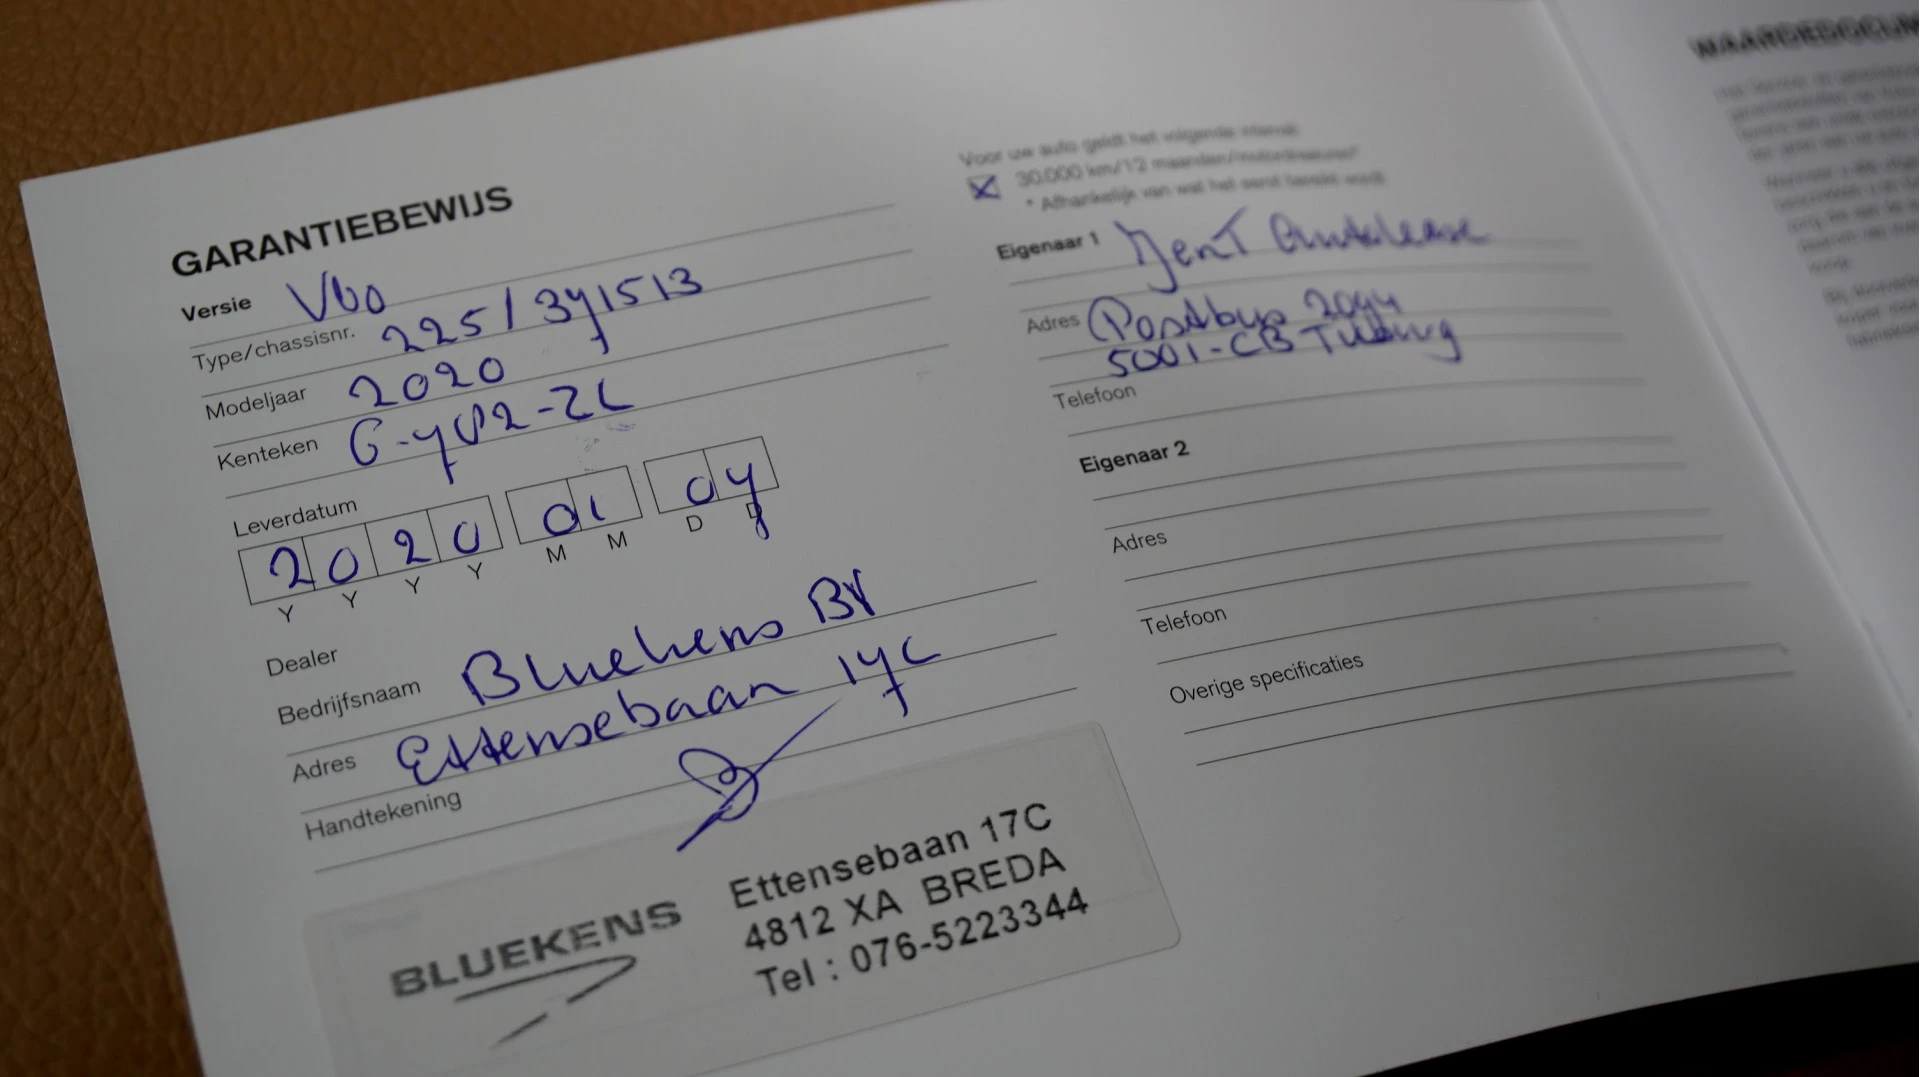 GARANTIEBEWIJS
Versie V60
Type/chassisnr. 225/371513
Modeljaar 2020
Kenteken G-702-ZL
Leverdatum
2020 01 07
Y Y Y Y M M D D
Dealer
Bedrijfsnaam Bluekens BV
Adres Ettensebaan 17C
Handtekening
BLUEKENS
Ettensebaan 17C
4812 XA BREDA
Tel : 076-5223344
Voor uw auto geldt het volgende interval:
30.000 km/12 maanden/motordraaiuren*
* Afhankelijk van wat het eerst bereikt wordt.
Eigenaar 1 J en T Autolease
Adres Postbus 2077
5001-CB Tilburg
Telefoon
Eigenaar 2
Adres
Telefoon
Overige specificaties
WAARDEDOCUM